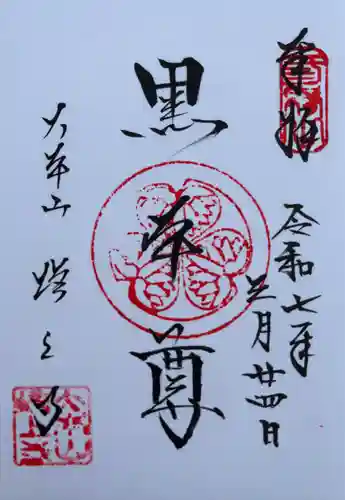 奉拝
令和七年
三月廿四日
黒本尊
大本山 増上寺